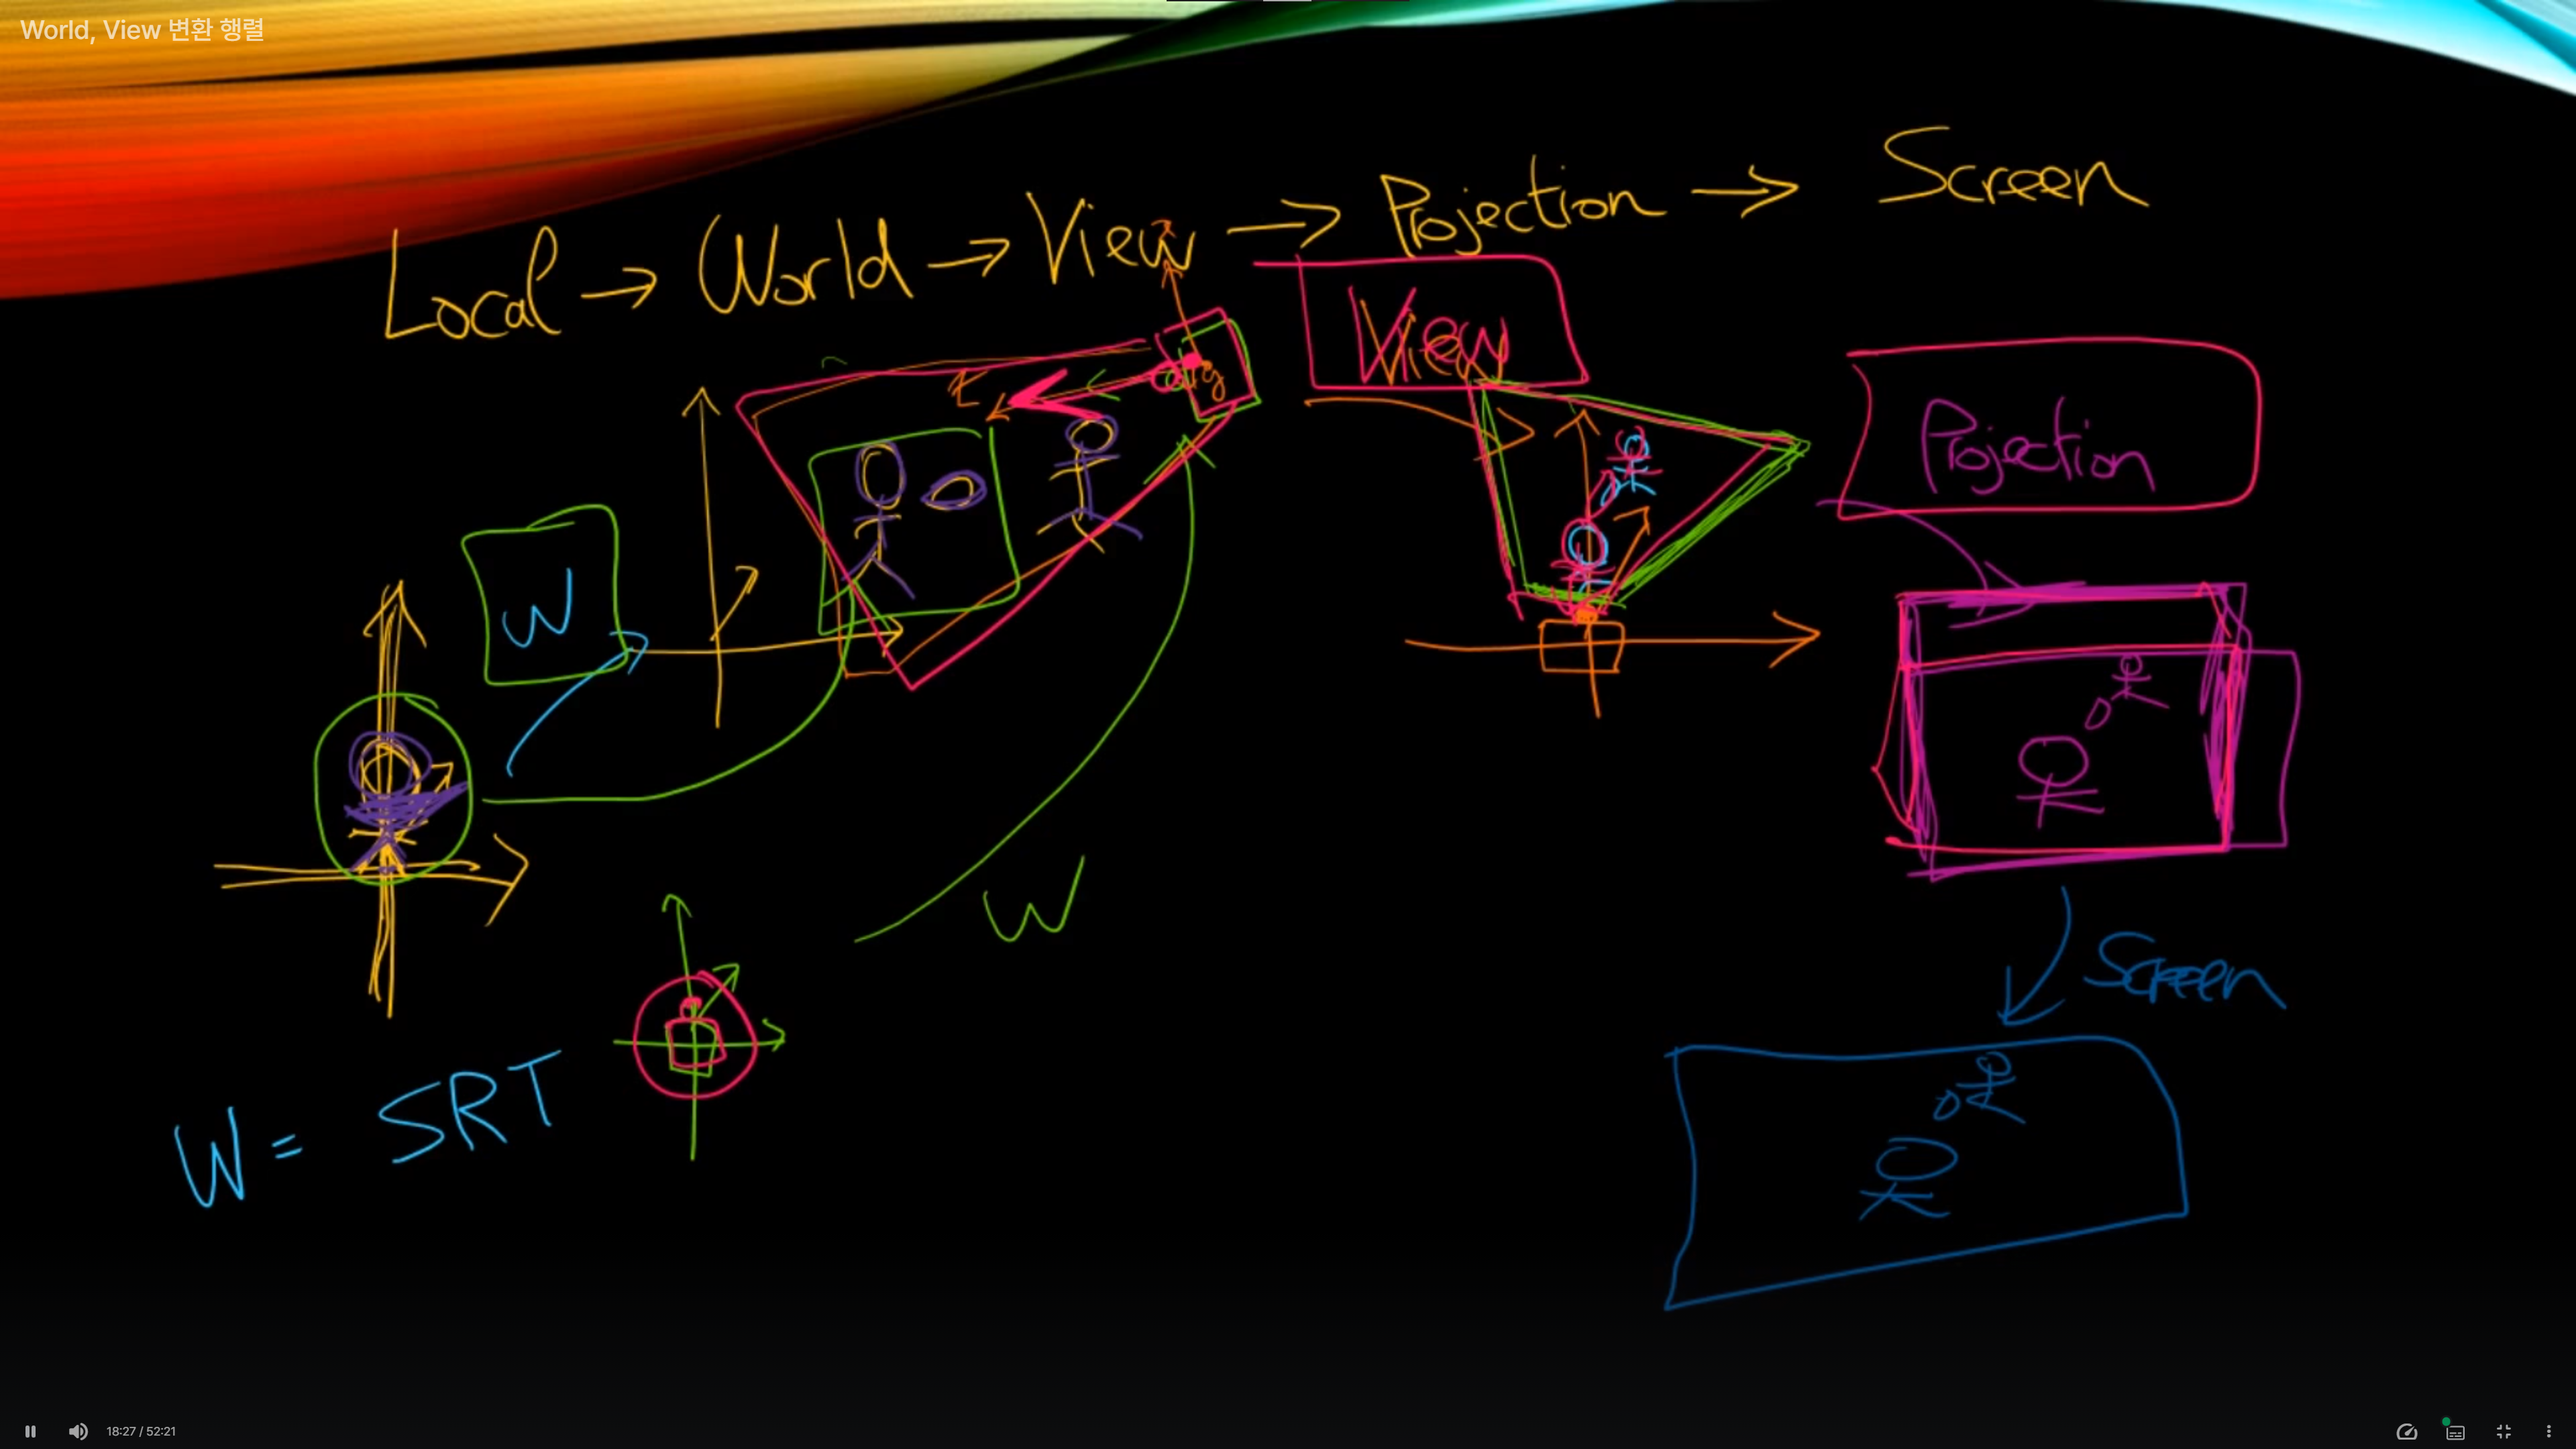 World, View 변환 행렬
Local → World → View → Projection → Screen
View
Projection
W
W
Screen
W = SRT
18:27 / 52:21